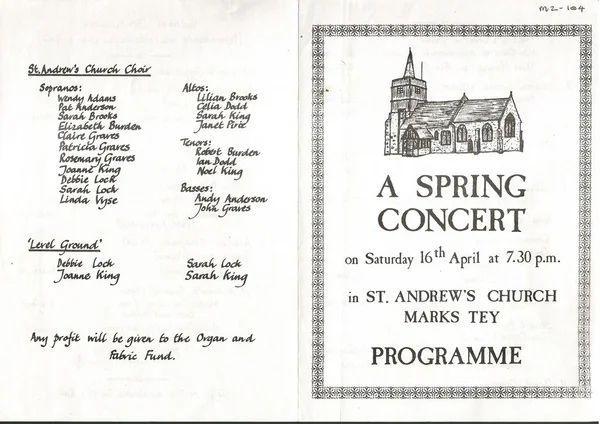 St. Andrew's Church Choir
Sopranos:
Wendy Adams
Pat Anderson
Sarah Brooks
Elizabeth Burden
Claire Graves
Patricia Graves
Rosemary Graves
Joanne King
Debbie Lock
Sarah Lock
Linda Vyse
Altos:
Lilian Brooks
Celia Dodd
Sarah King
Janet Pirie
Tenors:
Robert Burden
Ian Dodd
Noel King
Basses:
Andy Anderson
John Graves
'Level Ground'
Debbie Lock
Joanne King
Sarah Lock
Sarah King
Any profit will be given to the Organ and
Fabric Fund.
M2-104
A SPRING
CONCERT
on Saturday 16th April at 7.30 p.m.
in ST. ANDREW'S CHURCH
MARKS TEY
PROGRAMME